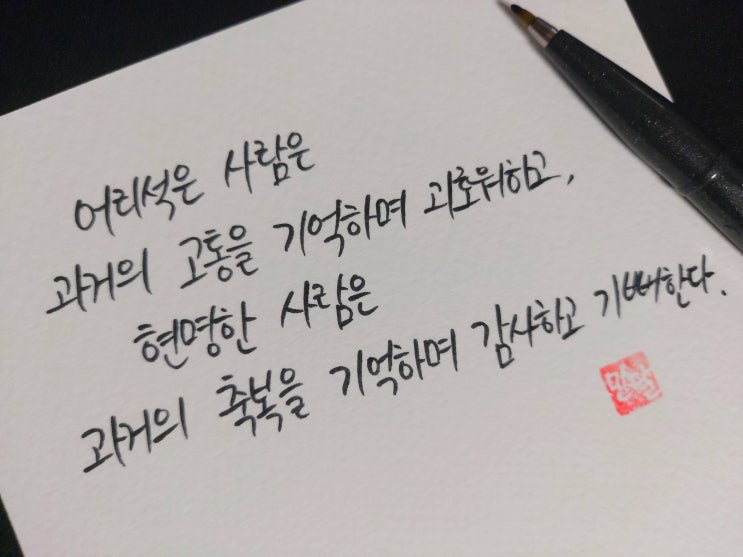 어리석은 사람은
과거의 고통을 기억하며 괴로워하고,
현명한 사람은
과거의 축복을 기억하며 감사하고 기뻐한다.